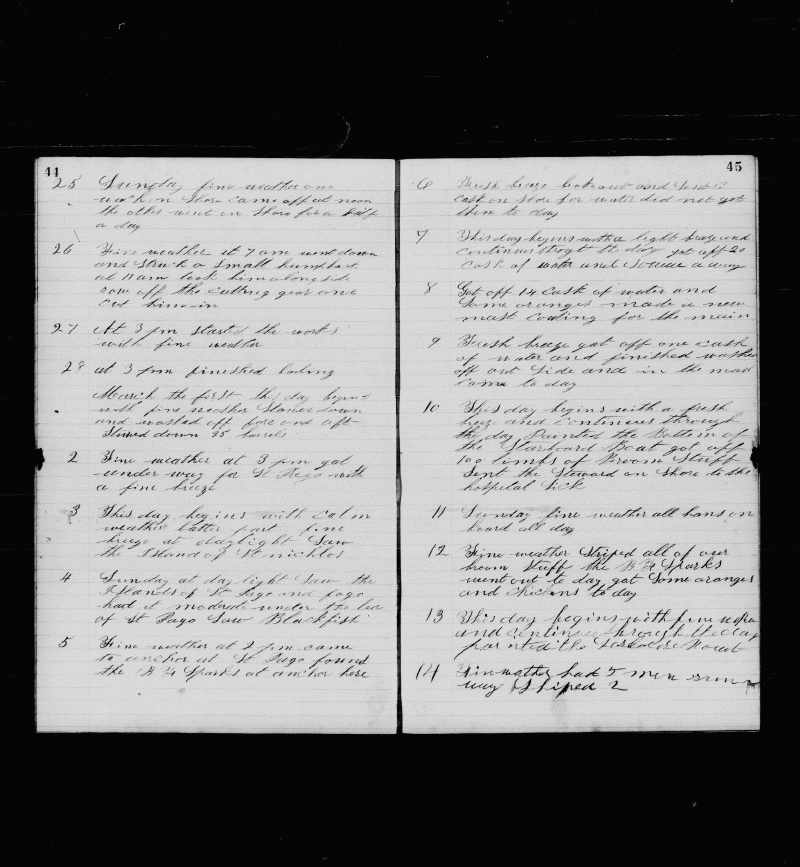 44
25 Sunday fine weather one
watch on Shore came off at noon
the other went on Shore for a half
a day
26 Fine weather at 7 am went down
and Struck a Small humpback
at 11 am took him alongside
row off the cutting gear and
cut him in
27 At 3 pm started the works
with fine weather
28 at 3 pm finished boiling
March the first this day begins
with fine weather Stowed down
and washed off fore and aft
Stowed down 35 barrels
2 Fine weather at 3 pm got
under way for St Jago with
a fine breeze
3 This day begins with calm
weather latter part fine
breeze at daylight Saw
the Island of St nichlos
4 Sunday at day light Saw the
Islands of St Jago and fogo
had it moderate under the lee
of St Jago Saw Blackfish
5 Fine weather at 2 pm came
to anchor at St Jago found
the Sparks at anchor here
45
6 Fresh breeze broke out and Sent
cask on Shore for water did not get
them to day
7 This day begins with a light breeze and
continues throgh the day got off 20
cask of water and Stowed away
8 Got off 14 cask of water and
Some oranges made a new
mast coating for the main
9 Fresh breeze got off one cask
of water and finished washed
off out Side and in the mail
came to day
10 This day begins with a fresh
breeze and continues through
the day Painted the Bottom of
the Starboard Boat got off
100 limbs of Broom Stuff
Sent the Steward on Shore to the
hospital Sick
11 Sunday fine weather all hans on
board all day
12 Fine weather Striped all of our
broom Stuff the Sparks
went out to day got Some oranges
and chickens to day
13 This day begins with fine
and continues through the day
painted the
14 Fine wether had 5 men run
way Shiped 2